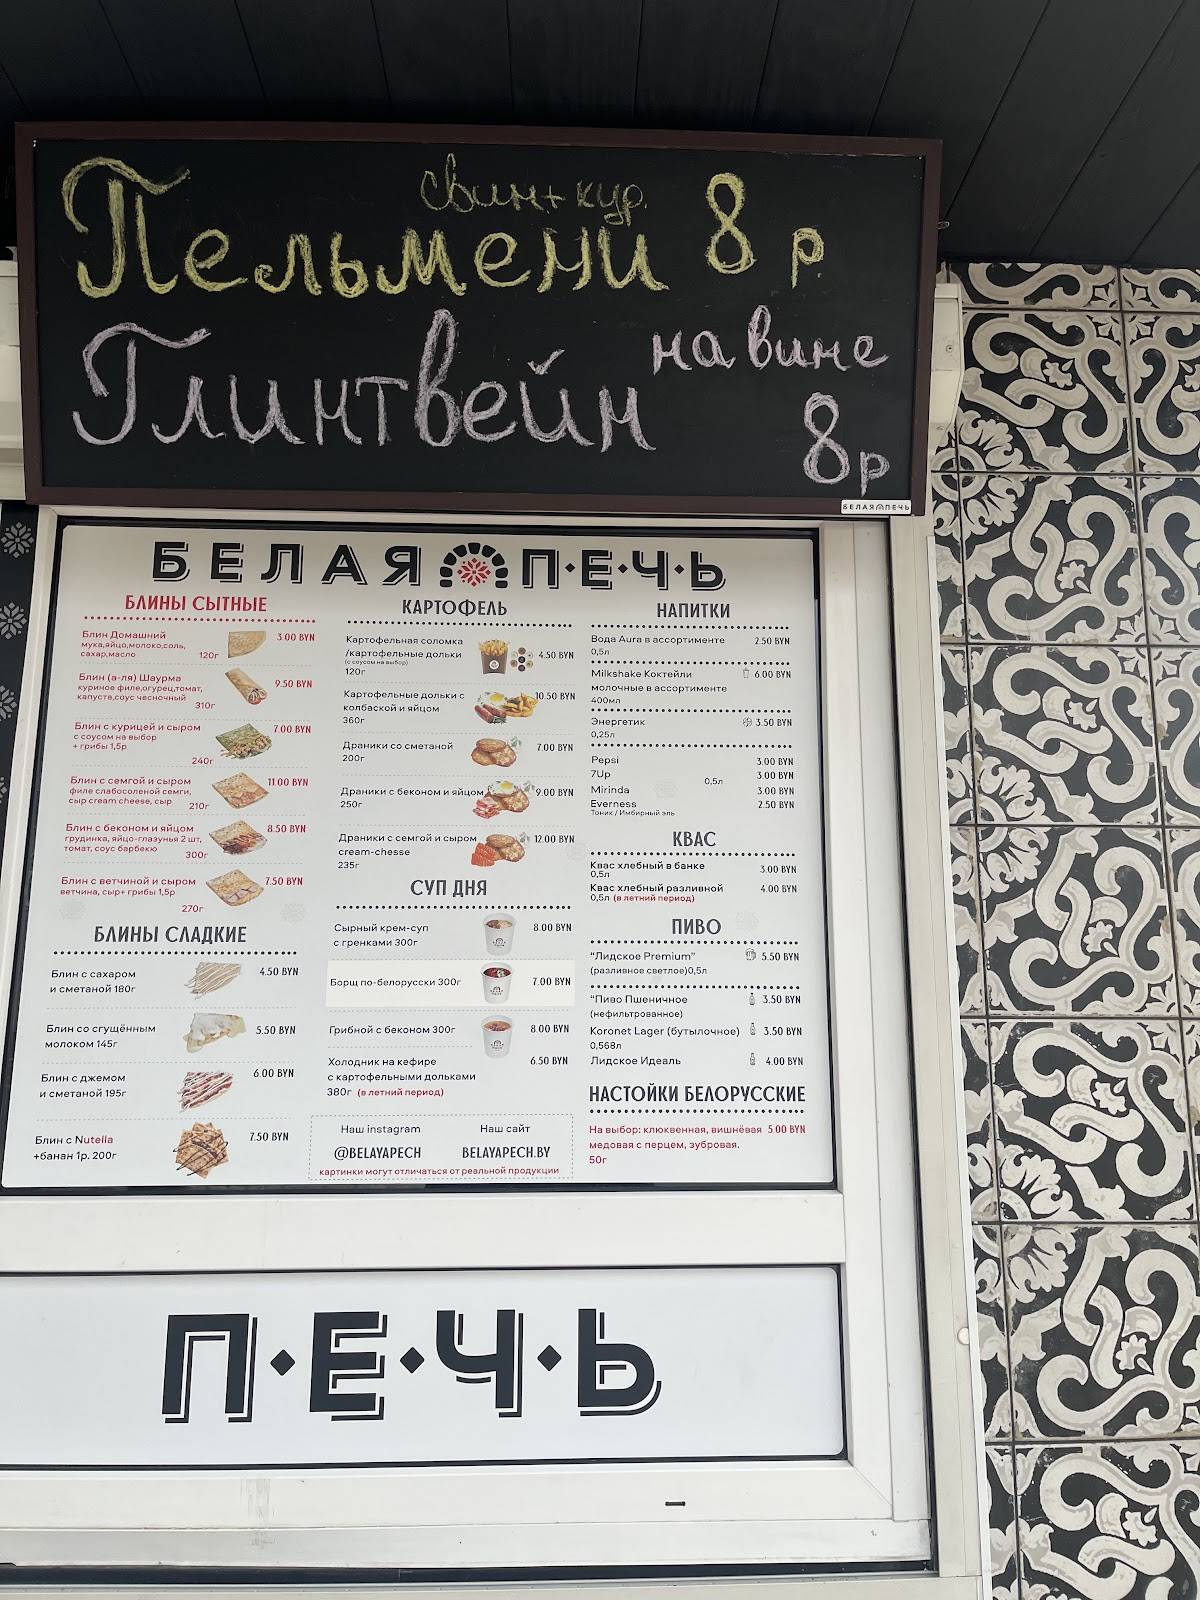 свин+кур.
Пельмени 8 р.
Глинтвейн на вине
8р
БЕЛАЯ ПЕЧЬ
БЕЛАЯ П·Е·Ч·Ь
БЛИНЫ СЫТНЫЕ
Блин Домашний 3.00 BYN
мука,яйцо,молоко,соль,
сахар,масло 120г
Блин (а-ля) Шаурма 9.50 BYN
куриное филе,огурец,томат,
капуста,соус чесночный
310г
Блин с курицей и сыром 7.00 BYN
с соусом на выбор
+ грибы 1,5р
240г
Блин с семгой и сыром 11.00 BYN
филе слабосоленой семги,
сыр cream cheese, сыр 210г
Блин с беконом и яйцом 8.50 BYN
грудинка, яйцо-глазунья 2 шт,
томат, соус барбекю 300г
Блин с ветчиной и сыром 7.50 BYN
ветчина, сыр+ грибы 1,5р
270г
БЛИНЫ СЛАДКИЕ
Блин с сахаром 4.50 BYN
и сметаной 180г
Блин со сгущённым 5.50 BYN
молоком 145г
Блин с джемом 6.00 BYN
и сметаной 195г
Блин с Nutella 7.50 BYN
+банан 1р. 200г
КАРТОФЕЛЬ
Картофельная соломка
/картофельные дольки 4.50 BYN
(с соусом на выбор)
120г
Картофельные дольки с 10.50 BYN
колбаской и яйцом
360г
Драники со сметаной 7.00 BYN
200г
Драники с беконом и яйцом 9.00 BYN
250г
Драники с семгой и сыром 12.00 BYN
cream-chesse
235г
СУП ДНЯ
Сырный крем-суп 8.00 BYN
с гренками 300г
Борщ по-белорусски 300г 7.00 BYN
Грибной с беконом 300г 8.00 BYN
Холодник на кефире 6.50 BYN
с картофельными дольками
380г (в летний период)
Наш instagram Наш сайт
@BELAYAPECH BELAYAPECH.BY
картинки могут отличаться от реальной продукции
НАПИТКИ
Вода Aura в ассортименте 2.50 BYN
0,5л
Milkshake Коктейли 6.00 BYN
молочные в ассортименте
400мл
Энергетик 3.50 BYN
0,25л
Pepsi 3.00 BYN
7Up 3.00 BYN
0,5л
Mirinda 3.00 BYN
Everness 2.50 BYN
Тоник / Имбирный эль
КВАС
Квас хлебный в банке 3.00 BYN
0,5л
Квас хлебный разливной 4.00 BYN
0,5л (в летний период)
ПИВО
"Лидское Premium" 5.50 BYN
(разливное светлое)0,5л
"Пиво Пшеничное 3.50 BYN
(нефильтрованное)
Koronet Lager (бутылочное) 3.50 BYN
0,568л
Лидское Идеаль 4.00 BYN
НАСТОЙКИ БЕЛОРУССКИЕ
На выбор: клюквенная, вишнёвая 5.00 BYN
медовая с перцем, зубровая.
50г
П·Е·Ч·Ь